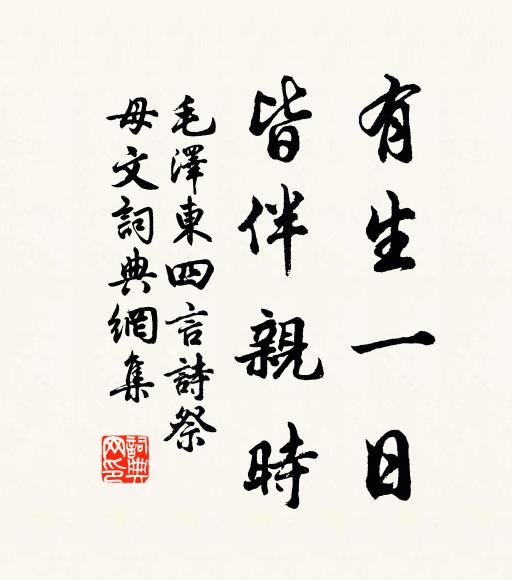 有生一日
皆伴親時
毛澤東四言詩祭
母文詞典網集
詞典
网印